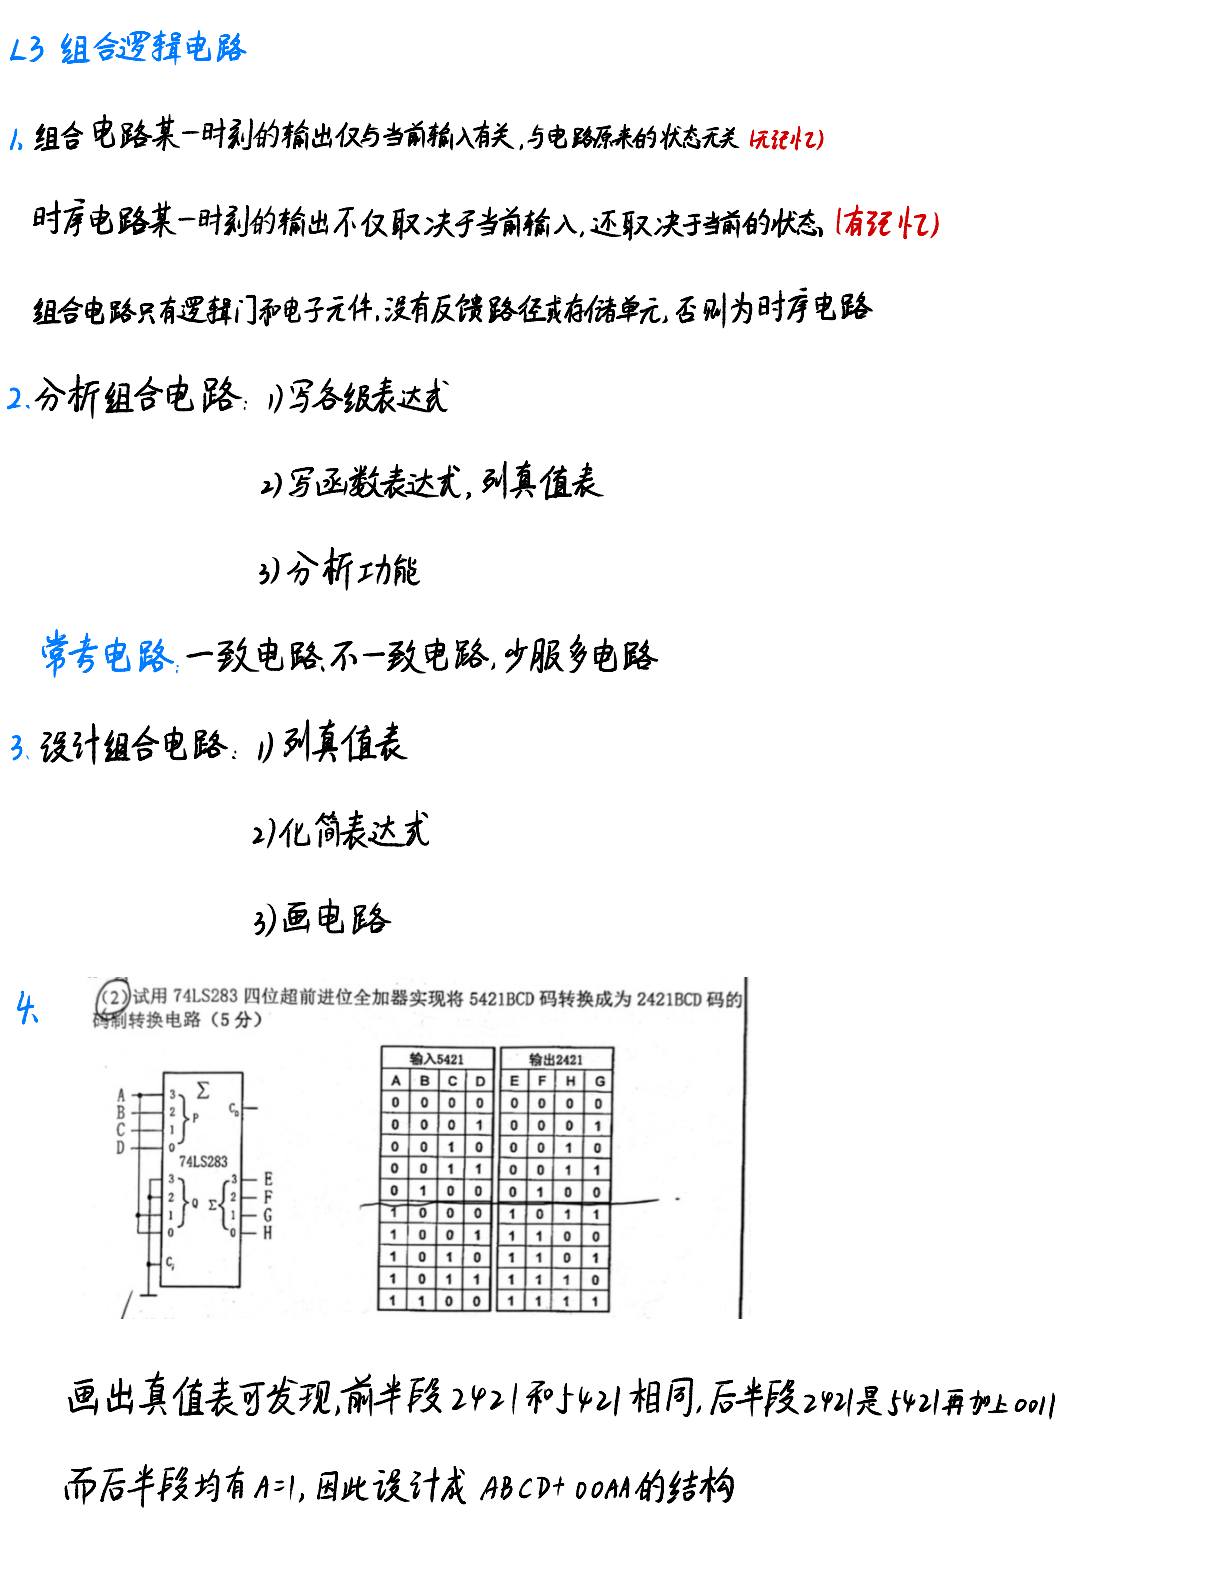 L3 组合逻辑电路
1、组合电路某一时刻的输出仅与当前输入有关,与电路原来的状态无关 (无记忆)
时序电路某一时刻的输出不仅取决于当前输入,还取决于当前的状态, (有记忆)
组合电路只有逻辑门和电子元件,没有反馈路径或存储单元,否则为时序电路
2.分析组合电路: 1)写各级表达式
2)写函数表达式,列真值表
3)分析功能
常考电路:一致电路、不一致电路,少服多电路
3、设计组合电路: 1)列真值表
2)化简表达式
3)画电路
4、 (2)试用 74LS283 四位超前进位全加器实现将 5421BCD 码转换成为 2421BCD 码的
码制转换电路(5 分)
输入5421 输出2421
A B C D E F H G
0 0 0 0 0 0 0 0
0 0 0 1 0 0 0 1
0 0 1 0 0 0 1 0
0 0 1 1 0 0 1 1
0 1 0 0 0 1 0 0
1 0 0 0 1 0 1 1
1 0 0 1 1 1 0 0
1 0 1 0 1 1 0 1
1 0 1 1 1 1 1 0
1 1 0 0 1 1 1 1
A 3 Σ
B 2 P C₀
C 1
D 0
74LS283
3 3 E
2 Q Σ 2 F
1 1 G
0 0 H
Cᵢ
画出真值表可发现,前半段2421和5421相同,后半段2421是5421再加上0011
而后半段均有A=1,因此设计成 ABCD+00AA的结构